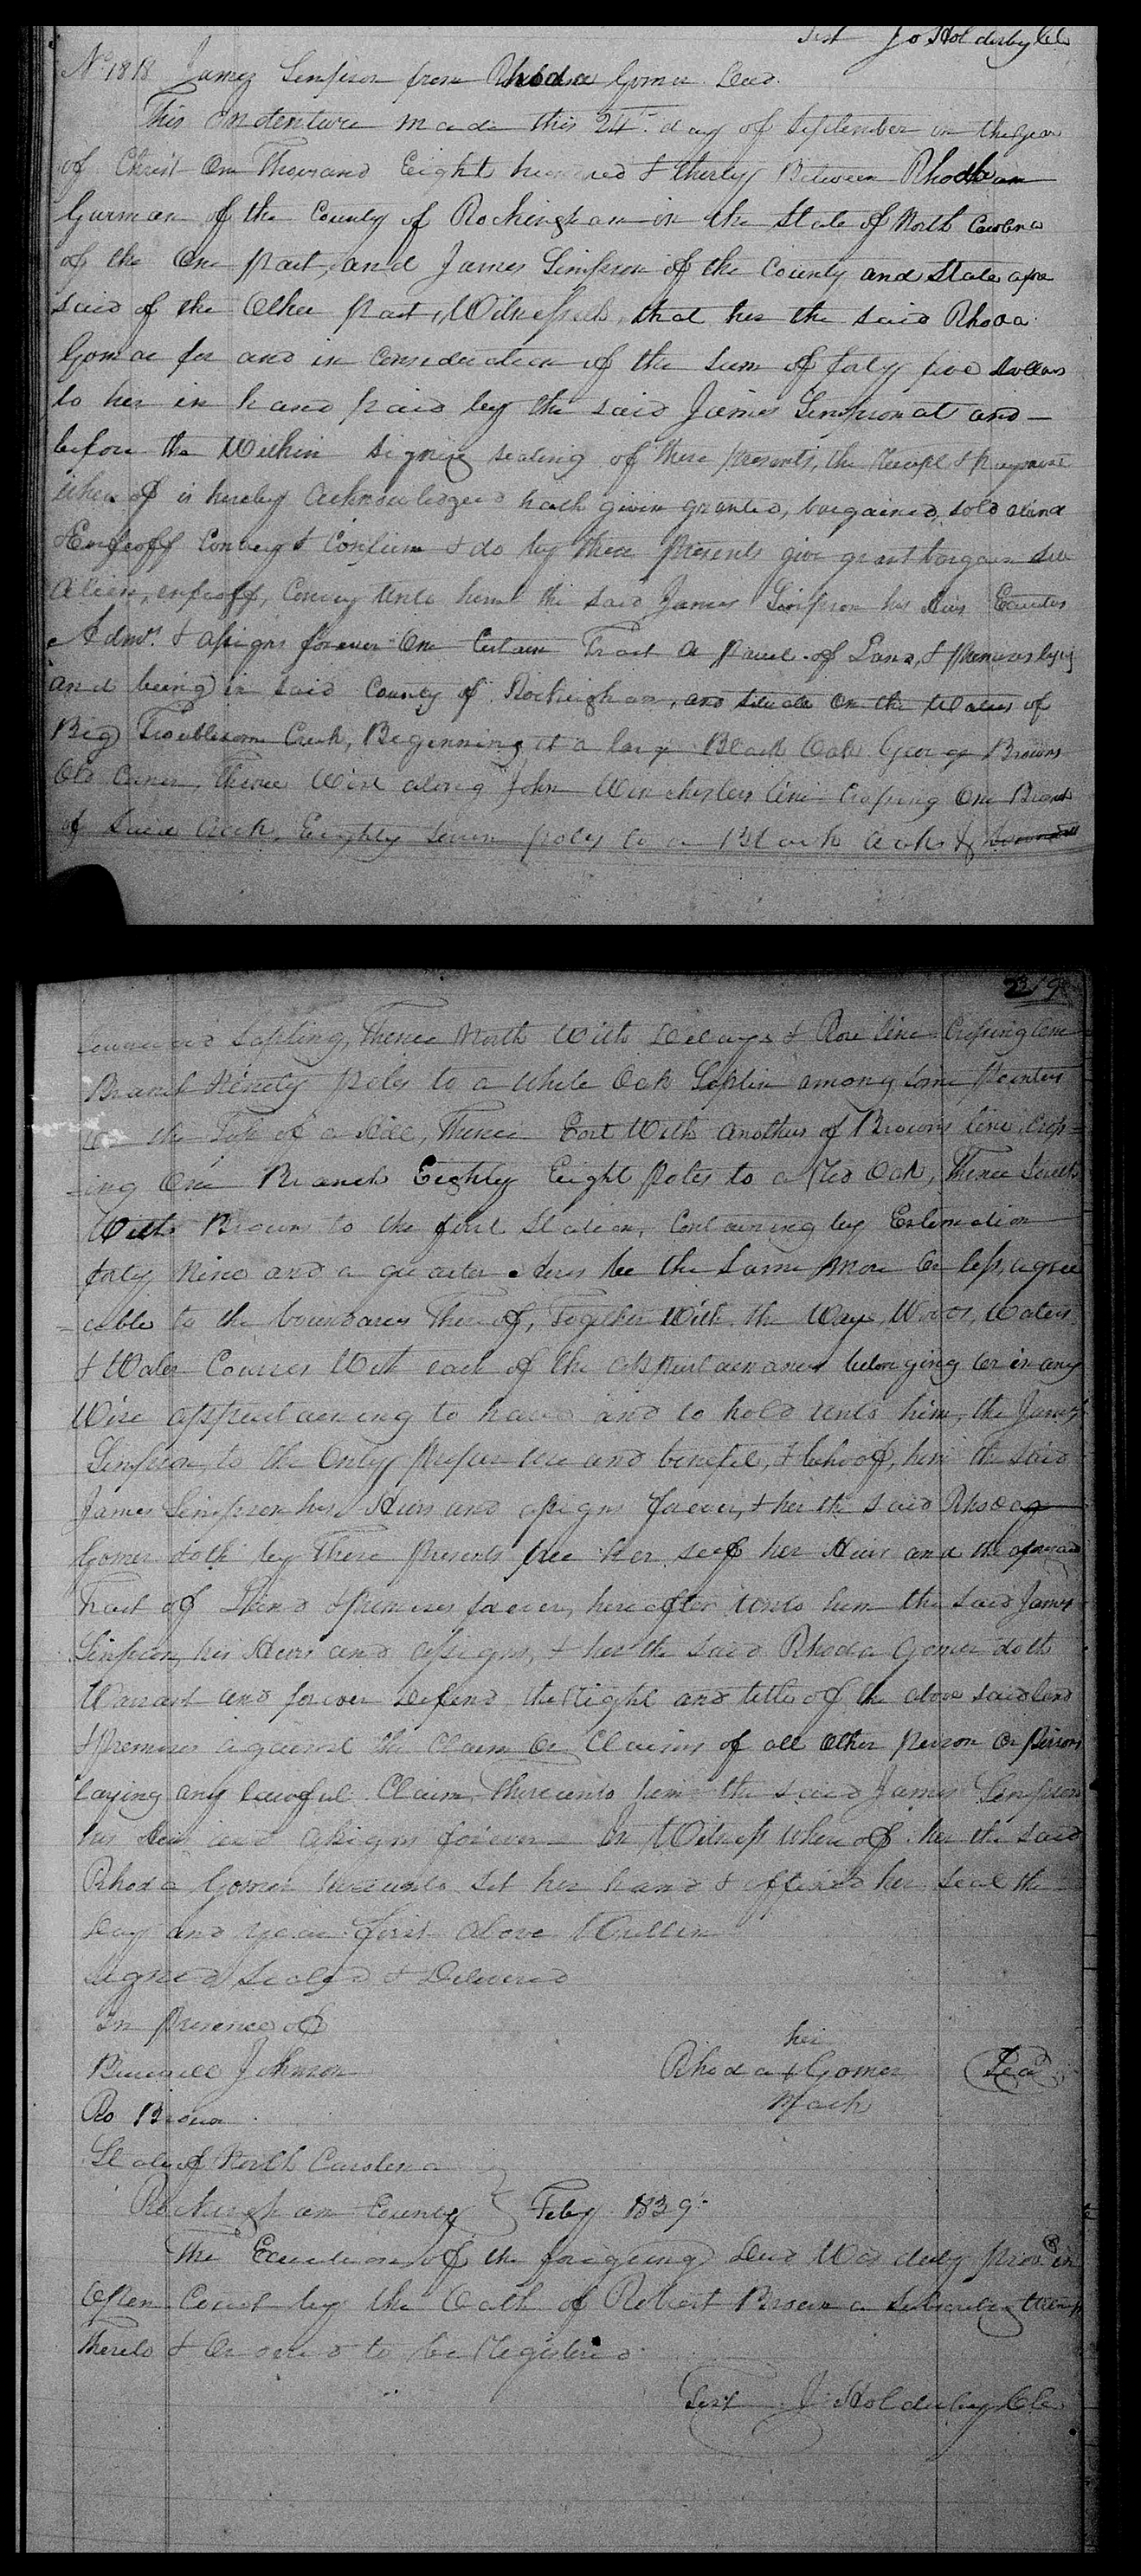 Test Jo Holderby Clk
No 1818 James Simpson from Rhoda Gomer Deed
This Indenture made this 24th day of September in the year
of Christ One Thousand Eight hundred & thirty Between Rhoda
Gurman of the County of Rockingham in the State of North Carolina
of the One part, and James Simpson of the County and State afore
said of the Other Part, Witnesseth, that her the said Rhoda
Gomer for and in Consideration of the sum of forty five dollars
to her in hand paid by the said James Simpson at and
before the Within signing sealing of these presents, the Receipt & payment
whereof is hereby Acknowledged hath given granted, bargained, sold
Enfeoff Convey & Confirm & do by these presents give grant bargain sell
Alien, enfeoff, Convey Unto him the said James Simpson his Heirs
Admrs. & assigns forever One Certain Tract or parcel of Land, & premises lying
and being in said County of Rockingham, and situate On the Waters of
Big Troublesome Creek, Beginning at a large Black Oak George Browns
Old Corner, Thence West along John Winchesters line Crossing One Branch
of said Creek, Eighty Seven poles to a Black Oak &
219
Sapling, Thence North With & line Crossing One
Branch Ninety poles to a White Oak Saplin among some pointers
the Side of a Hill, Thence East With another of Browns line, Cros=
=ing One Branch Eighty Eight Poles to a Red Oak, Thence South
With Browns to the first Station, Containing by Estimation
forty Nine and a quarter Acres be the Same More Or less, agree
=able to the boundares There of, Together With the Ways, Woods, Waters
& Water Courses With each of the Appurtaenances belonging Or in any
Wise appurtaening to have and to hold Unto him, the James
Simpson, to the Only proper use and benefit, & behoof, him the said
James Simpson his Heirs and assigns forever, & her the said Rhoda
Gomer doth by These presents free her self her Heirs and the aforesaid
Tract of Land & premises forever, hereafter Unto him the said James
Simpson, his Heirs and assigns, & her the said Rhoda Gomer doth
Warrant and forever Defend the Right and title of the above said land
& premises against the Claim Or Claims of all Other person Or persons
laying any lawful Claim, thereunto him the said James Simpson
his Heirs and assigns forever In Witness Whereof her the said
Rhoda Gomer hereunto set her hand & affixed her seal the
Day and year first above Written
Signed Sealed & Delivered
in presence of
her
Johnson Rhoda + Gomer Seal
Ro Brown Mark
State of North Carolina
Rockingham County } Feby 1839
The Execution of the foregoing Deed Was duly proved in
Open Court by the Oath of Robert Brown a Subscribing
thereto & Ordered to be Registered
Test J Holderby Clk